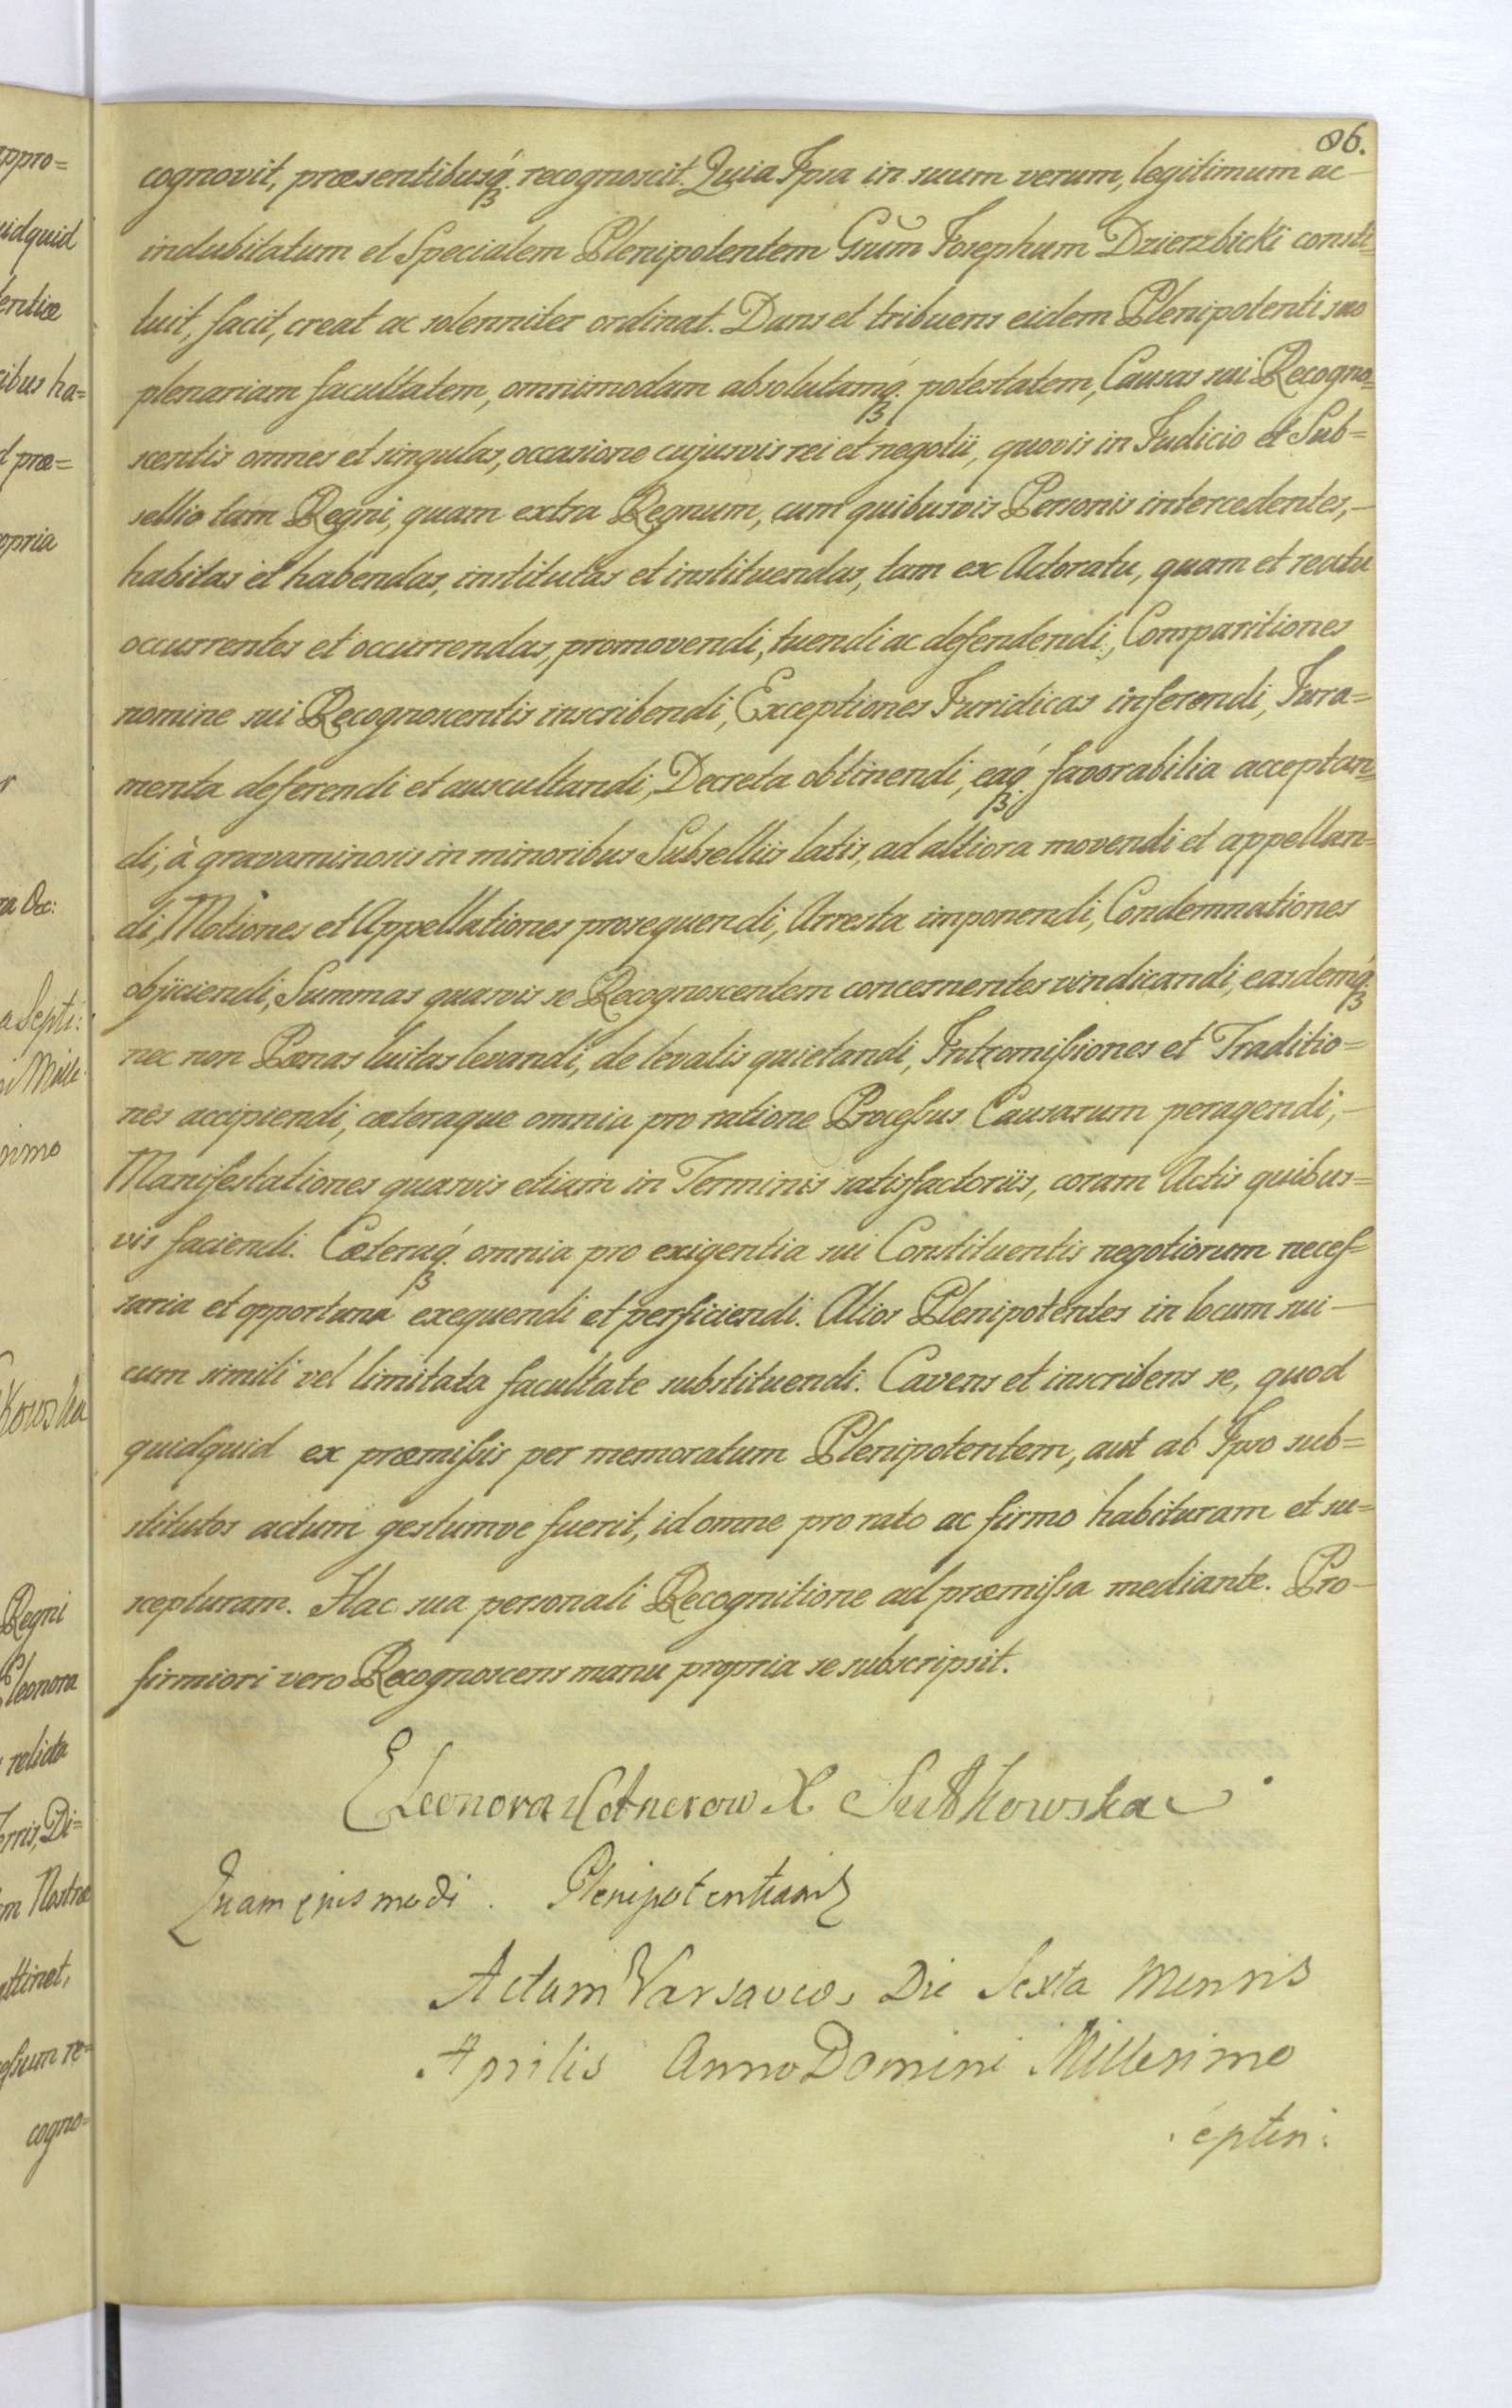 86.
cognovit, præsentibusq́ꝫ recognoscit. Quia Ipsa in suum verum, legitimum ac
indubitatum et Specialem Plenipotentem Gnũm Josephum Dzierzbicki consti=
tuit, facit, creat ac solenniter ordinat. Dans et tribuens eidem Plenipotenti suo
plenariam facultatem, omnimodam absolutamq́ꝫ potestatem, Causas sui Recogno=
scentis omnes et singulas, occasione cujusvis rei et negotii, quovis in Judicio et Sub=
sellio tam Regni, quam extra Regnum, cum quibusvis Personis intercedentes,
habitas et habendas, institutas et instituendas, tam ex Actoratu, quam et reatu
occurrentes et occurrendas, promovendi, tuendi ac defendendi, Comparitiones
nomine sui Recognoscentis inscribendi, Exceptiones Juridicas inferendi, Jura=
menta deferendi et auscultandi, Decreta obtinendi, eaq́ꝫ favorabilia acceptan=
di, à gravaminosis in minoribus Subselliis latis, ad altiora movendi et appellan=
di, Motiones et Appellationes prosequendi, Arresta imponendi, Condemnationes
objiciendi, Summas quasvis se Recognoscentem concernentes vindicandi, easdemq́ꝫ
nec non Pœnas luitas levandi, de levatis quietandi, Intromissiones et Traditio=
nes accipiendi, cæteraque omnia pro ratione Processus Causarum peragendi,
Manifestationes quasvis etiam in Terminis satisfactoriis, coram Actis quibus=
vis faciendi. Cæteraq́ꝫ omnia pro exigentia sui Constituentis negotiorum neces=
saria et opportuna exequendi et perficiendi. Alios Plenipotentes in locum sui
cum simili vel limitata facultate substituendi. Cavens et inscribens se, quod
quidquid ex præmissis per memoratum Plenipotentem, aut ab Ipso sub=
stitutos actum gestumve fuerit, id omne pro rato ac firmo habituram et su=
scepturam. Hac sua personali Recognitione ad præmissa mediante. Pro
firmiori vero Recognoscens manu propria se subscripsit.
Eleonora X Sułkowska
Quam ejusmodi Plenipotentiam
Actum Varsaviæ, Die Sexta Mensis
Aprilis Anno Domini Millesimo
septin: